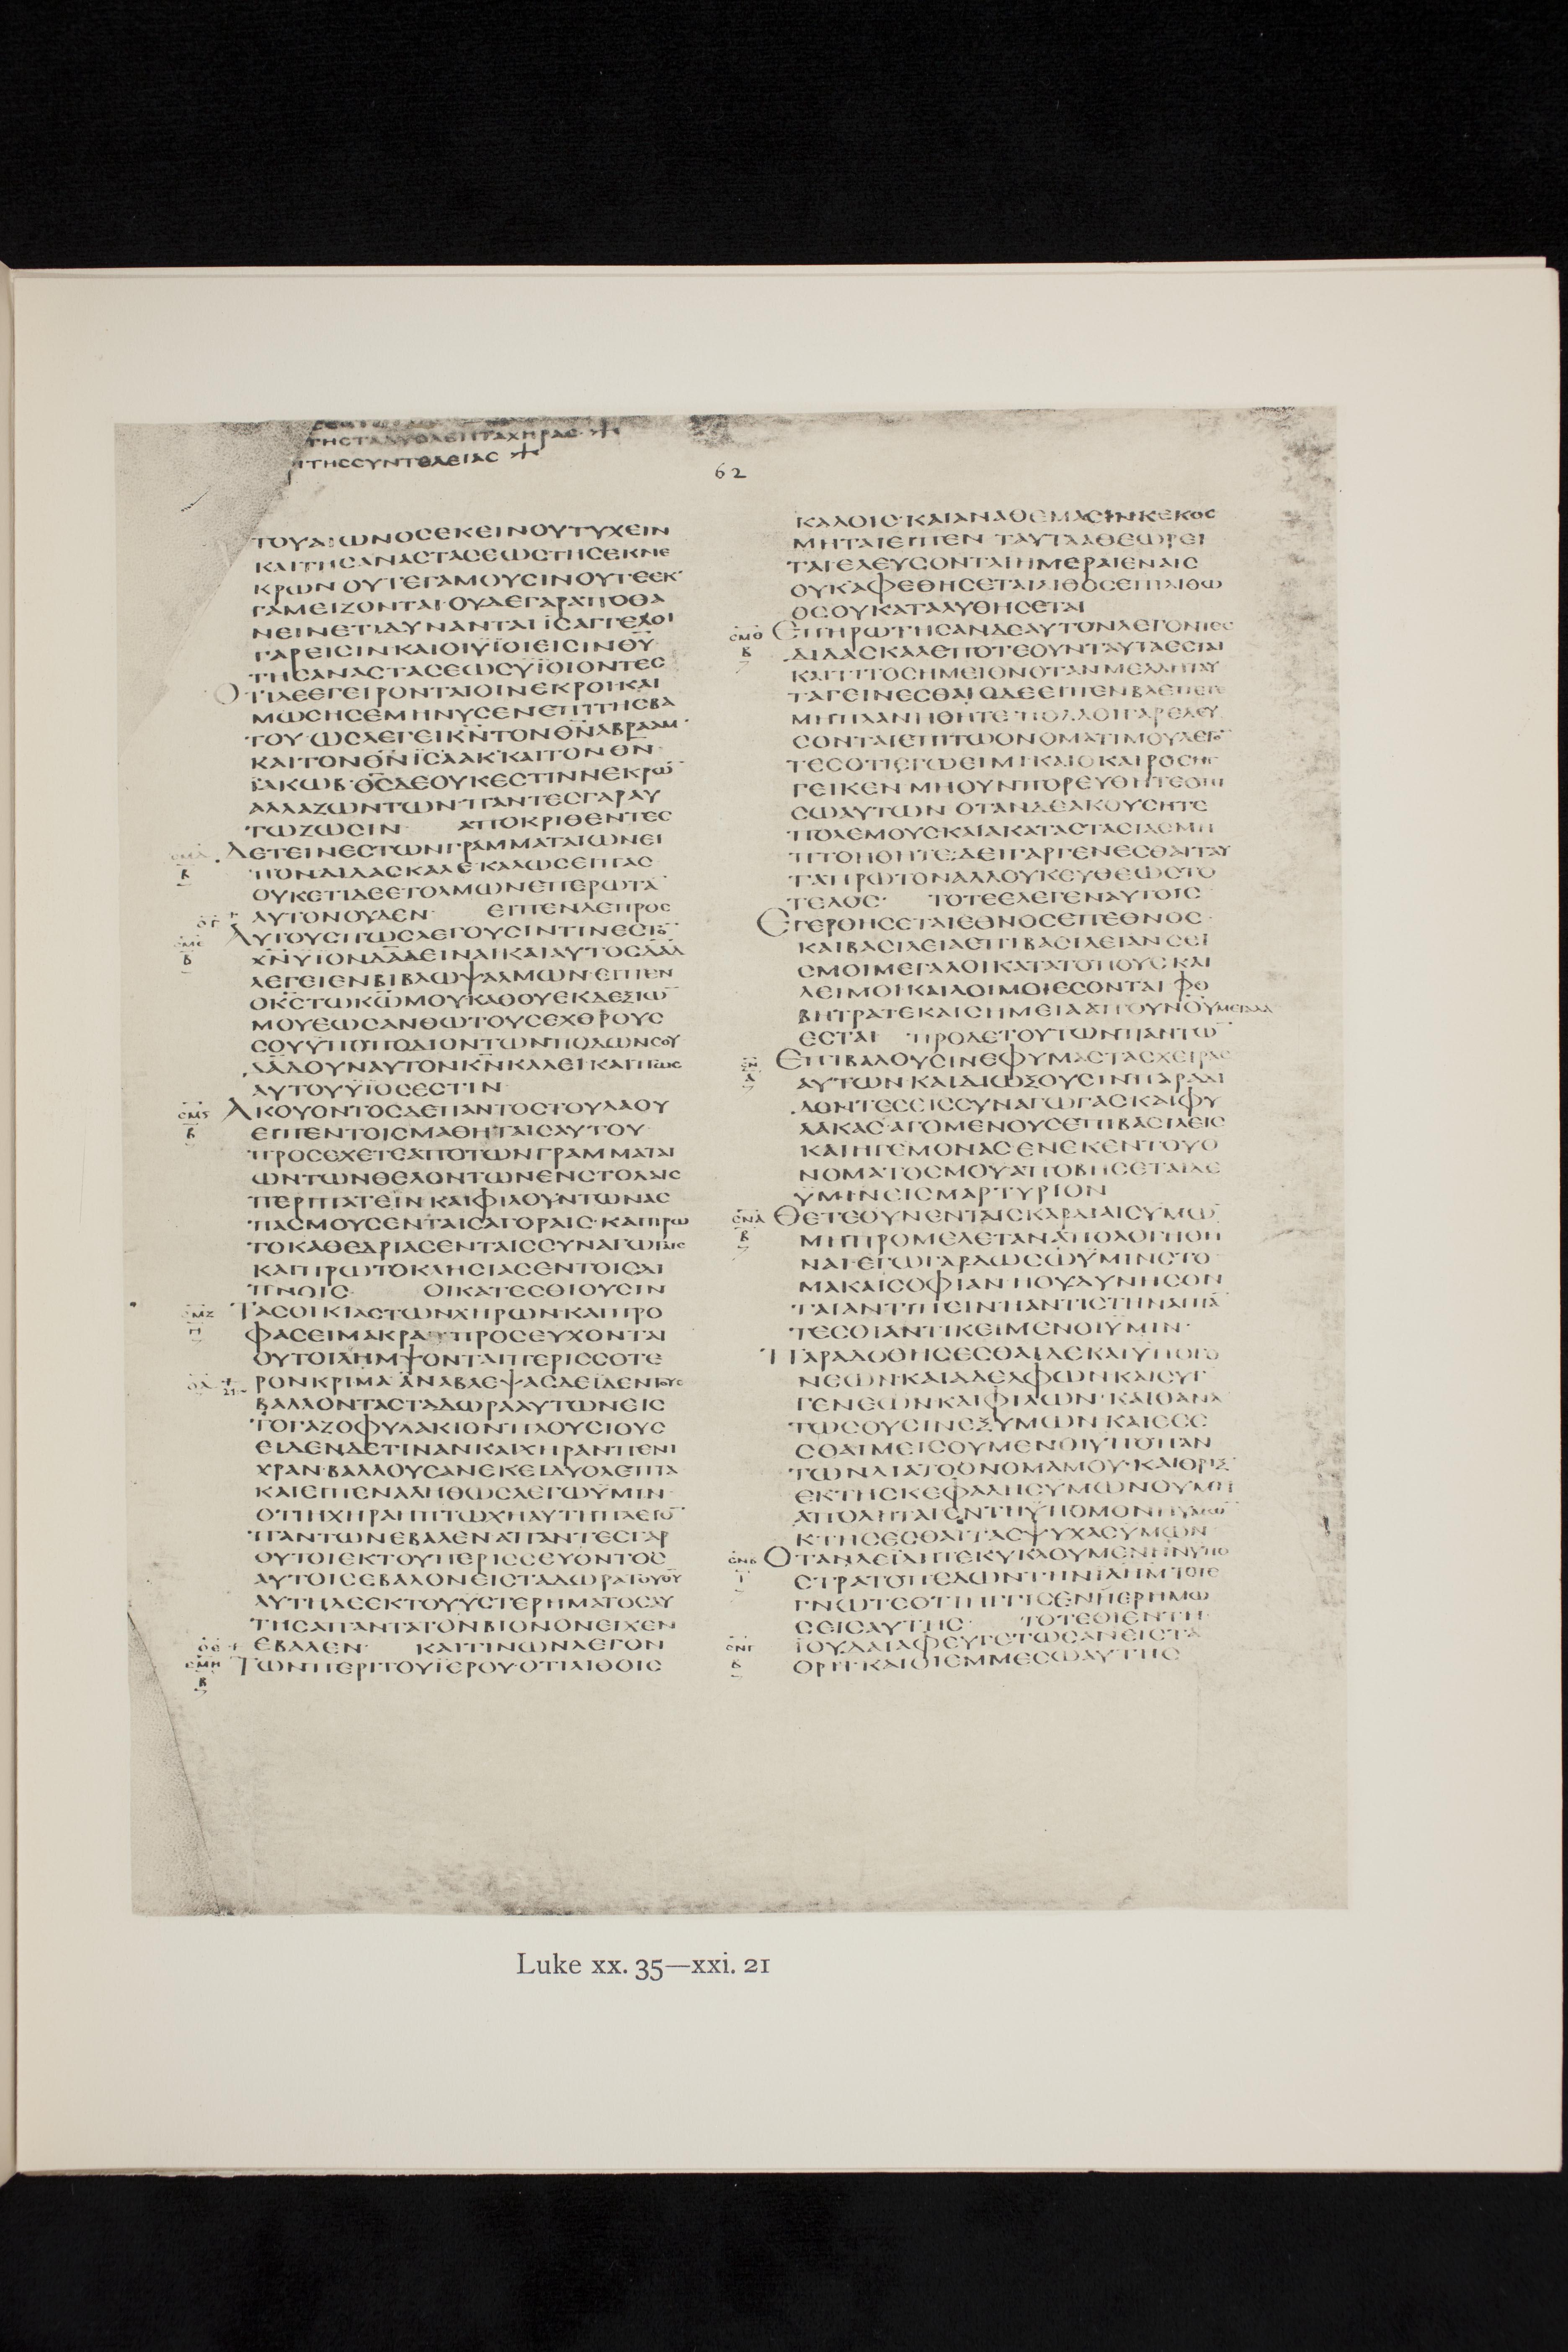 ΤΗΣ ΤΑ ΔΥΟ ΛΕΠΤΑ ΧΗΡΑΣ
ΤΗΣ ΣΥΝΤΕΛΕΙΑΣ
62
ΤΟΥΑΙΩΝΟCΕΚΕΙΝΟΥΤΥΧΕΙΝ
ΚΑΙΤΗCΑΝΑCΤΑCΕΩCΤΗCΕΚΝΕ
ΚΡΩΝΟΥΤΕΓΑΜΟΥCΙΝΟΥΤΕΕΚ
ΓΑΜΕΙΖΟΝΤΑΙ·ΟΥΔΕΓΑΡΑΠΟΘΑ
ΝΕΙΝΕΤΙΔΥΝΑΝΤΑΙΙCΑΓΓΕΛΟΙ
ΓΑΡΕΙCΙΝΚΑΙΟΙΫΙΟΙΕΙCΙΝΘΥ
ΤΗCΑΝΑCΤΑCΕΩCΥΪΟΙΟΝΤΕC
ΟΤΙΔΕΕΓΕΙΡΟΝΤΑΙΟΙΝΕΚΡΟΙΚΑΙ
ΜΩCΗCΕΜΗΝΥCΕΝΕΠΙΤΗCΒΑ
ΤΟΥ·ΩCΛΕΓΕΙΚΝΤΟΝΘΝΑΒΡΑΑΜ·
ΚΑΙΤΟΝΘΝΪCΑΑΚ·ΚΑΙΤΟΝΘΝ
ΪΑΚΩΒ·ΘCΔΕΟΥΚΕCΤΙΝΝΕΚΡΩ̅
ΑΛΛΑΖΩΝΤΩΝ·ΠΑΝΤΕCΓΑΡΑΥ
ΤΩΖΩCΙΝ· ΑΠΟΚΡΙΘΕΝΤΕC
ΔΕΤΕΙΝΕCΤΩΝΓΡΑΜΜΑΤΑΙΩΝΕΙ
ΠΟΝΔΙΔΑCΚΑΛΕΚΑΛΩCΕΙΠΑC
ΟΥΚΕΤΙΔΕΕΤΟΛΜΩΝΕΠΕΡΩΤΑ̅
ΑΥΤΟΝΟΥΔΕΝ· ΕΙΠΕΝΔΕΠΡΟC
ΑΥΤΟΥCΠΩCΛΕΓΟΥCΙΝΤΙΝΕCΤΟ̅
ΧΝΫΙΟΝΔΑΔΕΙΝΑΙΚΑΙΑΥΤΟCΔΑΔ
ΛΕΓΕΙΕΝΒΙΒΛΩΨΑΛΜΩΝ·ΕΙΠΕΝ
ΟΚCΤΩΚΩΜΟΥΚΑΘΟΥΕΚΔΕΞΙΩ̅
ΜΟΥΕΩCΑΝΘΩΤΟΥCΕΧΘΡΟΥC
CΟΥΫΠΟΠΟΔΙΟΝΤΩΝΠΟΔΩΝCΟΥ
ΔΑΔΟΥΝΑΥΤΟΝΚΝΚΑΛΕΙ·ΚΑΙΠΩC
ΑΥΤΟΥΫΙΟCΕCΤΙΝ·
CΜϚ ΑΚΟΥΟΝΤΟCΔΕΠΑΝΤΟCΤΟΥΛΑΟΥ
Β ΕΙΠΕΝΤΟΙCΜΑΘΗΤΑΙCΑΥΤΟΥ
ΠΡΟCΕΧΕΤΕΑΠΟΤΩΝΓΡΑΜΜΑΤΑΙ
ΩΝΤΩΝΘΕΛΟΝΤΩΝΕΝCΤΟΛΑΙC
ΠΕΡΙΠΑΤΕΙΝΚΑΙΦΙΛΟΥΝΤΩΝΑC
ΠΑCΜΟΥCΕΝΤΑΙCΑΓΟΡΑΙC·ΚΑΙΠΡΩ
ΤΟΚΑΘΕΔΡΙΑCΕΝΤΑΙCCΥΝΑΓΩΓΑΙC
ΚΑΙΠΡΩΤΟΚΛΗCΙΑCΕΝΤΟΙCΔΙ
ΠΝΟΙC ΟΙΚΑΤΕCΘΙΟΥCΙΝ
CΜΖ ΤΑCΟΙΚΙΑCΤΩΝΧΗΡΩΝ·ΚΑΙΠΡΟ
Η ΦΑCΕΙΜΑΚΡΑΠΡΟCΕΥΧΟΝΤΑΙ
ΟΥΤΟΙΛΗΜΨΟΝΤΑΙΠΕΡΙCCΟΤΕ
21 ΡΟΝΚΡΙΜΑ·ΑΝΑΒΛΕΨΑCΔΕΪΔΕΝΤΟΥC
ΒΑΛΛΟΝΤΑCΤΑΔΩΡΑΑΥΤΩΝΕΙC
ΤΟΓΑΖΟΦΥΛΑΚΙΟΝΠΛΟΥCΙΟΥC
ΕΙΔΕΝΔΕΤΙΝΑΝΚΑΙΧΗΡΑΝΠΕΝΙ
ΧΡΑΝ·ΒΑΛΛΟΥCΑΝΕΚΕΙΔΥΟΛΕΠΤΑ
ΚΑΙΕΙΠΕΝΑΛΗΘΩCΛΕΓΩΫΜΙΝ
ΟΤΙΗΧΗΡΑΗΠΤΩΧΗΑΥΤΗΠΛΕΙΟ̅
ΠΑΝΤΩΝΕΒΑΛΕΝ·ΑΠΑΝΤΕCΓΑΡ
ΟΥΤΟΙΕΚΤΟΥΠΕΡΙCCΕΥΟΝΤΟC
ΑΥΤΟΙCΕΒΑΛΟΝΕΙCΤΑΔΩΡΑΤΟΥΘΥ
ΑΥΤΗΔΕΕΚΤΟΥΥCΤΕΡΗΜΑΤΟCΑΥ
ΤΗCΑΠΑΝΤΑΤΟΝΒΙΟΝΟΝΕΙΧΕΝ
ΕΒΑΛΕΝ· ΚΑΙΤΙΝΩΝΛΕΓΟΝ
CΜΗ ΤΩΝΠΕΡΙΤΟΥΪΕΡΟΥ·ΟΤΙΛΙΘΟΙC
Β
ΚΑΛΟΙC·ΚΑΙΑΝΑΘΕΜΑCΙΝΚΕΚΟC
ΜΗΤΑΙΕΙΠΕΝ ΤΑΥΤΑΑΘΕΩΡΕΙ
ΤΑΙΕΛΕΥCΟΝΤΑΙΗΜΕΡΑΙΕΝΑΙC
ΟΥΚΑΦΕΘΗCΕΤΑΙΛΙΘΟCΕΠΙΛΙΘΩ
ΟCΟΥΚΑΤΑΛΥΘΗCΕΤΑΙ
CΜΘ ΕΠΗΡΩΤΗCΑΝΔΕΑΥΤΟΝΛΕΓΟΝΤΕC
Β ΔΙΔΑCΚΑΛΕΠΟΤΕΟΥΝΤΑΥΤΑΕCΤΑΙ
ΚΑΙΤΙΤΟCΗΜΕΙΟΝΟΤΑΝΜΕΛΛΗΤΑΥ
ΤΑΓΕΙΝΕCΘΑΙΟΔΕΕΙΠΕΝΒΛΕΠΕΤΕ
ΜΗΠΛΑΝΗΘΗΤΕ·ΠΟΛΛΟΙΓΑΡΕΛΕΥ
CΟΝΤΑΙΕΠΙΤΩΟΝΟΜΑΤΙΜΟΥΛΕΓΟ̅
ΤΕCΟΤΙΕΓΩΕΙΜΙΚΑΙΟΚΑΙΡΟCΗΓ
ΓΕΙΚΕΝΜΗΟΥΝΠΟΡΕΥΘΗΤΕΟΠΙ
CΩΑΥΤΩΝΟΤΑΝΔΕΑΚΟΥCΗΤΕ
ΠΟΛΕΜΟΥCΚΑΙΑΚΑΤΑCΤΑCΙΑCΜΗ
ΠΤΟΗΘΗΤΕ·ΔΕΙΓΑΡΓΕΝΕCΘΑΙΤΑΥ
ΤΑΠΡΩΤΟΝΑΛΛΟΥΚΕΥΘΕΩCΤΟ
ΤΕΛΟC· ΤΟΤΕΕΛΕΓΕΝΑΥΤΟΙC
ΕΓΕΡΘΗCΕΤΑΙΕΘΝΟCΕΠΕΘΝΟC·
ΚΑΙΒΑCΙΛΕΙΑΕΠΙΒΑCΙΛΕΙΑΝCΕΙ
CΜΟΙΜΕΓΑΛΟΙΚΑΤΑΤΟΠΟΥCΚΑΙ
ΛΕΙΜΟΙΚΑΙΛΟΙΜΟΙΕCΟΝΤΑΙΦΟ
ΒΗΤΡΑΤΕΚΑΙCΗΜΕΙΑΑΠΟΥΝΟΥΜΕΓΑΛΑ
ΕCΤΑΙ ΠΡΟΔΕΤΟΥΤΩΝΠΑΝΤΩ̅
CΝ ΕΠΙΒΑΛΟΥCΙΝΕΦΥΜΑCΤΑCΧΕΙΡΑC
Α ΑΥΤΩΝΚΑΙΔΙΩΞΟΥCΙΝΠΑΡΑΔΙ
ΔΟΝΤΕCΕΙCCΥΝΑΓΩΓΑCΚΑΙΦΥ
ΛΑΚΑC·ΑΓΟΜΕΝΟΥCΕΠΙΒΑCΙΛΕΙC
ΚΑΙΗΓΕΜΟΝΑCΕΝΕΚΕΝΤΟΥΟ
ΝΟΜΑΤΟCΜΟΥΑΠΟΒΗCΕΤΑΙΔΕ
ΫΜΙΝΕΙCΜΑΡΤΥΡΙΟΝ
CΝΑ ΘΕΤΕΟΥΝΕΝΤΑΙCΚΑΡΔΙΑΙCΥΜΩ̅
Β ΜΗΠΡΟΜΕΛΕΤΑΝΑΠΟΛΟΓΗΘΗ
ΝΑΙ·ΕΓΩΓΑΡΔΩCΩΫΜΙΝCΤΟ
ΜΑΚΑΙCΟΦΙΑΝΗΟΥΔΥΝΗCΟΝ
ΤΑΙΑΝΤΙΠΕΙΝΗΑΝΤΙCΤΗΝΑΙΠΑ̅
ΤΕCΟΙΑΝΤΙΚΕΙΜΕΝΟΙΫΜΙΝ·
ΠΑΡΑΔΟΘΗCΕCΘΑΙΔΕΚΑΙΥΠΟΓΟ
ΝΕΩΝ·ΚΑΙΑΔΕΛΦΩΝΚΑΙCΥΓ
ΓΕΝΕΩΝΚΑΙΦΙΛΩΝ·ΚΑΙΘΑΝΑ
ΤΩCΟΥCΙΝΕΞΥΜΩΝΚΑΙΕCΕ
CΘΑΙΜΕΙCΟΥΜΕΝΟΙΫΠΟΠΑΝ
ΤΩΝΔΙΑΤΟΟΝΟΜΑΜΟΥ·ΚΑΙΘΡΙΞ
ΕΚΤΗCΚΕΦΑΛΗCΥΜΩΝΟΥΜΗ
ΑΠΟΛΗΤΑΙΕΝΤΗΫΠΟΜΟΝΗΥΜΩ̅
ΚΤΗCΕCΘΑΙΤΑCΨΥΧΑCΥΜΩΝ
CΝΒ ΟΤΑΝΔΕΪΔΗΤΕΚΥΚΛΟΥΜΕΝΗΝΥΠΟ
CΤΡΑΤΟΠΕΔΩΝΤΗΝΙΛΗΜΤΟΤΕ
ΓΝΩΤΕΟΤΙΗΓΓΙCΕΝΗΕΡΗΜΩ
CΕΙCΑΥΤΗC· ΤΟΤΕΟΙΕΝΤΗ
CΝΓ ΙΟΥΔΑΙΑΦΕΥΓΕΤΩCΑΝΕΙCΤΑ
Β ΟΡΗ·ΚΑΙΟΙΕΜΜΕCΩΑΥΤΗC
Luke xx. 35—xxi. 21